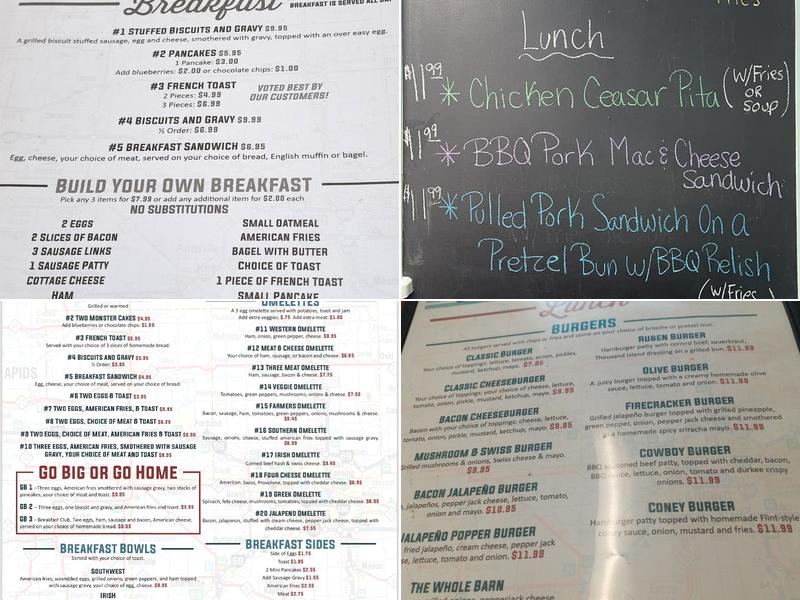 Breakfast
BREAKFAST IS SERVED ALL DAY
#1 STUFFED BISCUITS AND GRAVY $9.95
A grilled biscuit stuffed sausage, egg and cheese, smothered with gravy, topped with an over easy egg.
#2 PANCAKES $5.95
1 Pancake: $3.00
Add blueberries: $2.00 or chocolate chips: $1.00
#3 FRENCH TOAST
2 Pieces: $4.99
3 Pieces: $6.99
VOTED BEST BY
OUR CUSTOMERS!
#4 BISCUITS AND GRAVY $9.99
½ Order: $6.99
#5 BREAKFAST SANDWICH $6.95
Egg, cheese, your choice of meat, served on your choice of bread, English muffin or bagel.
BUILD YOUR OWN BREAKFAST
Pick any 3 items for $7.99 or add any additional item for $2.00 each
NO SUBSTITUTIONS
2 EGGS
2 SLICES OF BACON
3 SAUSAGE LINKS
1 SAUSAGE PATTY
COTTAGE CHEESE
HAM
SMALL OATMEAL
AMERICAN FRIES
BAGEL WITH BUTTER
CHOICE OF TOAST
1 PIECE OF FRENCH TOAST
SMALL PANCAKE
Lunch
$11.99 * Chicken Ceasar Pita (W/Fries
OR
SOUP)
$11.99 * BBQ Pork Mac & Cheese
Sandwich
$11.99 * Pulled Pork Sandwich On a
Pretzel Bun w/BBQ Relish
(W/Fries
Grilled or warmed
#2 TWO MONSTER CAKES $4.95
Add blueberries or chocolate chips: $1.00
#3 FRENCH TOAST $5.95
Served with your choice of 3 slices of homemade bread.
#4 BISCUITS AND GRAVY $5.95
½ Order: $3.95
#5 BREAKFAST SANDWICH $4.95
Egg, cheese, your choice of meat, served on your choice of bread.
#6 TWO EGGS & TOAST $3.95
#7 TWO EGGS, AMERICAN FRIES, & TOAST $5.95
#8 TWO EGGS, CHOICE OF MEAT & TOAST
#9 TWO EGGS, CHOICE OF MEAT, AMERICAN FRIES & TOAST
#10 THREE EGGS, AMERICAN FRIES, SMOTHERED WITH SAUSAGE
GRAVY, YOUR CHOICE OF MEAT, AND TOAST
GO BIG OR GO HOME
GB 1 - Three eggs, American fries smothered with sausage gravy, two stacks of
pancakes, your choice of meat and toast. $9.95
GB 2 - Three eggs, one biscuit and gravy, and American fries and toast.
GB 3 - Breakfast Club. Two eggs, ham, sausage and bacon, American cheese,
served on your choice of homemade bread.
BREAKFAST BOWLS
Served with your choice of toast.
SOUTHWEST
American fries, scrambled eggs, grilled onions, green peppers, and ham topped
with sausage gravy, your choice of egg, cheese. $8.95
IRISH
OMELETTES
A 3 egg omelette served with potatoes, toast and jam
Add extra veggies: $.75 Add extra meat: $1.00
#11 WESTERN OMELETTE
Ham, onion, green pepper, cheese.
#12 MEAT & CHEESE OMELETTE
Your choice of ham, sausage, or bacon and cheese.
#13 THREE MEAT OMELETTE
Ham, sausage, bacon & cheese. $7.75
#14 VEGGIE OMELETTE
Tomatoes, green peppers, mushrooms, onions & cheese.
#15 FARMERS OMELETTE
Bacon, sausage, ham, tomatoes, green peppers, onions, mushrooms & cheese.
#16 SOUTHERN OMELETTE
Sausage, onions, cheese, stuffed american fries topped with sausage gravy.
#17 IRISH OMELETTE
Corned beef hash & swiss cheese.
#18 FOUR CHEESE OMELETTE
American, Swiss, Provolone, topped with cheddar cheese.
#19 GREEK OMELETTE
Spinach, feta cheese, mushrooms, tomatoes, topped with cheddar cheese.
#20 JALAPENO OMELETTE
Bacon, jalapenos, stuffed with cream cheese, pepper jack cheese, topped with
cheddar cheese.
BREAKFAST SIDES
Side of Eggs $1.75
Toast $1.95
2 Mini Pancakes
Add Sausage Gravy
American Fries
Meat $2.75
Lunch
BURGERS
All burgers served with chips or fries and come on your choice of brioche or pretzel bun.
CLASSIC BURGER
Your choice of toppings: lettuce, tomato, onion, pickles,
mustard, ketchup, mayo.
CLASSIC CHEESEBURGER
Your choice of toppings: your choice of cheese, lettuce,
tomato, onion, pickle, mustard, ketchup, mayo. $8.95
BACON CHEESEBURGER
Bacon with your choice of toppings: cheese, lettuce,
tomato, onion, pickle, mustard, ketchup, mayo. $9.95
MUSHROOM & SWISS BURGER
Grilled mushrooms & onions, Swiss cheese & mayo.
$9.95
BACON JALAPEÑO BURGER
jalapeños, pepper jack cheese, lettuce, tomato,
onion and mayo. $10.95
JALAPEÑO POPPER BURGER
fried jalapeño, cream cheese, pepper jack
lettuce, tomato and onion. $11.99
THE WHOLE BARN
RUBEN BURGER
Hamburger patty with corned beef, sauerkraut,
Thousand Island dressing on a grilled bun. $11.99
OLIVE BURGER
A juicy burger topped with a creamy homemade olive
sauce, lettuce, tomato and onion. $11.99
FIRECRACKER BURGER
Grilled jalapeño burger topped with grilled pineapple,
green pepper, onion, pepper jack cheese and smothered
in a homemade spicy sriracha mayo. $11.99
COWBOY BURGER
BBQ seasoned beef patty, topped with cheddar, bacon,
BBQ sauce, lettuce, onion, tomato and durkee crispy
onions. $11.99
CONEY BURGER
Hamburger patty topped with homemade Flint-style
coney sauce, onion, mustard and fries. $11.99